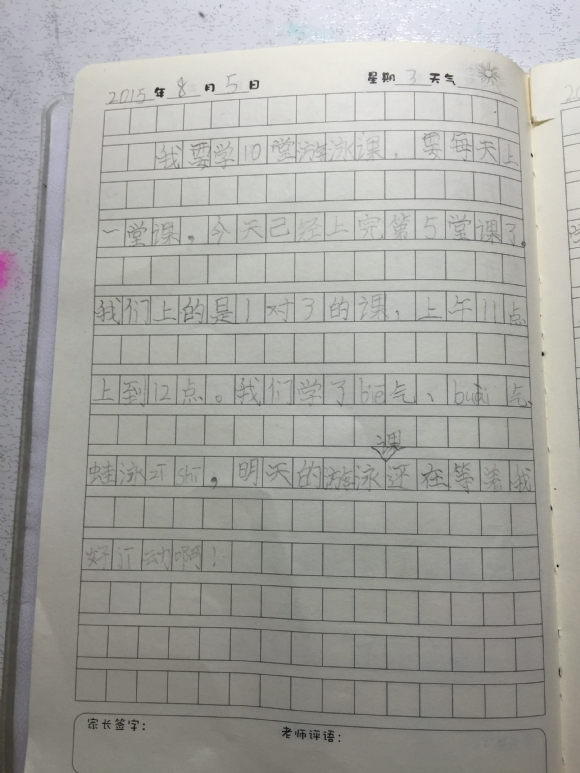 2015年8月5日 星期3天气
我要学10堂游泳课，要每天上
一堂课。今天已经上完第5堂课了。
我们上的是1对3的课，上午11点
上到12点。我们学了bie气、huqi气、
课
蛙泳zi shi，明天的游泳还在等着我
好ji动啊！
家长签字： 老师评语：